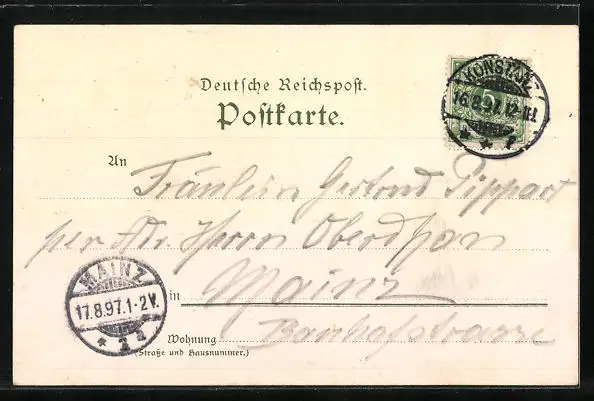 Deutsche Reichspost.
Postkarte.
KONSTANZ
16.8.97.12-1N.
5
An Fräulein Gertrud Pippart
per Adr. Herrn Oberdhan
in Mainz
MAINZ
17.8.97.1-2V.
* 1 a
Wohnung Bahnhofstrasse
(Straße und Hausnummer.)